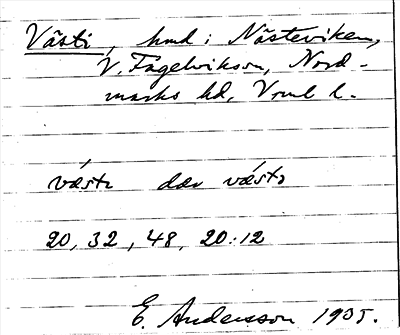 Västi, hmd i Nästeviken,
V. Fågelviksm, Nord-
marks hd, Vrml l.
västɩ dæ
20, 32, 48, 20:12
E. Andersson 1935.